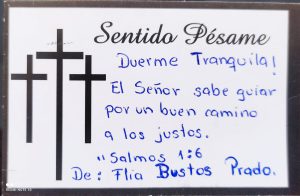 Sentido Pésame
Duerme Tranquila!
El Señor sabe guiar
por un buen camino
a los justos.
"Salmos 1:6
De: Flia Bustos Prado.